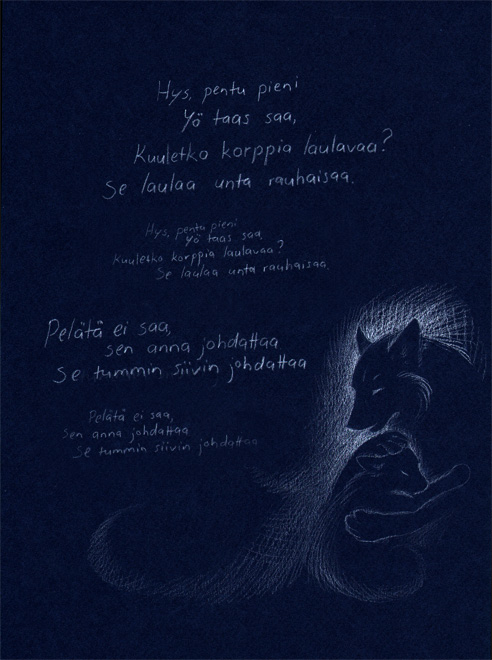 Hys, pentu pieni
Yö taas saa,
Kuuletko korppia laulavaa?
Se laulaa unta rauhaisaa.
Hys, pentu pieni
Yö taas saa,
Kuuletko korppia laulavaa?
Se laulaa unta rauhaisaa.
Pelätä ei saa,
sen anna johdattaa
Se tummin siivin johdattaa
Pelätä ei saa,
sen anna johdattaa
Se tummin siivin johdattaa